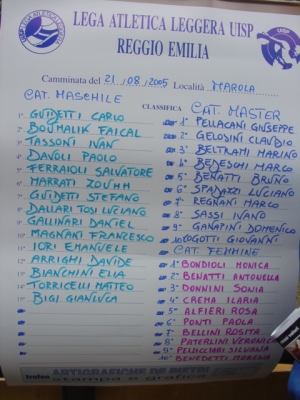 LEGA ATLETICA LEGGERA UISP
REGGIO EMILIA
Camminata del 21/08/2005 Località MAROLA
CAT. MASCHILE
CLASSIFICA
1° GUIDETTI CARLO
2° BOUMALIK FAICAL
3° TASSONI IVAN
4° DAVOLI PAOLO
5° FERRAIOLI SALVATORE
6° MARRATI ZOUHH
7° GUIDETTI STEFANO
8° DALLARI TOSI LUCIANO
9° GALLINARI DANIEL
10° MAGNANI FRANCESCO
11° IORI EMANUELE
12° ARRIGHI DAVIDE
13° BIANCHINI ELIA
14° TORRICELLI MATTEO
15° BIGI GIANLUCA
CAT. MASTER
1° PELLACANI GIUSEPPE
2° GELOSINI CLAUDIO
3° BELTRAMI MARINO
4° BEDESCHI MARCO
5° BENATTI BRUNO
6° SPADAZZI LUCIANO
7° REGNANI MARCO
8° SASSI IVANO
9° GANAPINI DOMENICO
10° TOGOTTI GIOVANNI
CAT. FEMMINE
1° BONDIOLI MONICA
2° BENATTI ANTONELLA
3° DONNINI SONIA
4° CREMA ILARIA
5° ALFIERI ROSA
6° PONTI PAOLA
7° BELLINI ROSITA
8° PATERLINI VERONICA
9° PELLICCIARI SILVANA
10° BENEDETTI MORENA
ARTIGRAFICHE DE PIETRI
stampa e grafica